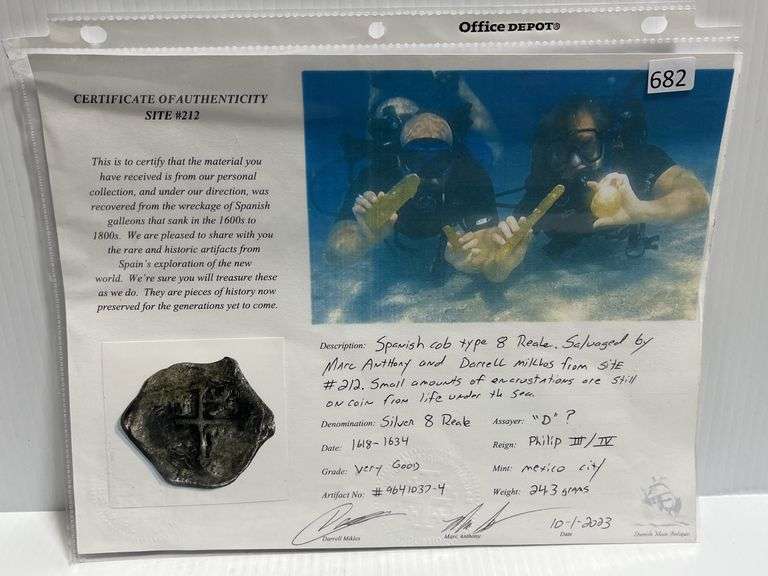 Office DEPOT®
682
CERTIFICATE OF AUTHENTICITY
SITE #212
This is to certify that the material you
have received is from our personal
collection, and under our direction, was
recovered from the wreckage of Spanish
galleons that sank in the 1600s to
1800s. We are pleased to share with you
the rare and historic artifacts from
Spain's exploration of the new
world. We're sure you will treasure these
as we do. They are pieces of history now
preserved for the generations yet to come.
Description: Spanish cob type 8 Reale. Salvaged by
Marc Anthony and Darrell Miklos from Site
#212. Small amounts of encrustations are still
on coin from life under the sea.
Denomination: Silver 8 Reale Assayer: "D" ?
Date: 1618-1634 Reign: Philip III/IV
Grade: Very Good Mint: Mexico City
Artifact No: #9641037-4 Weight: 24.3 grams
10-1-2023
Darrell Miklos Marc Anthony Date Spanish Main Antiques